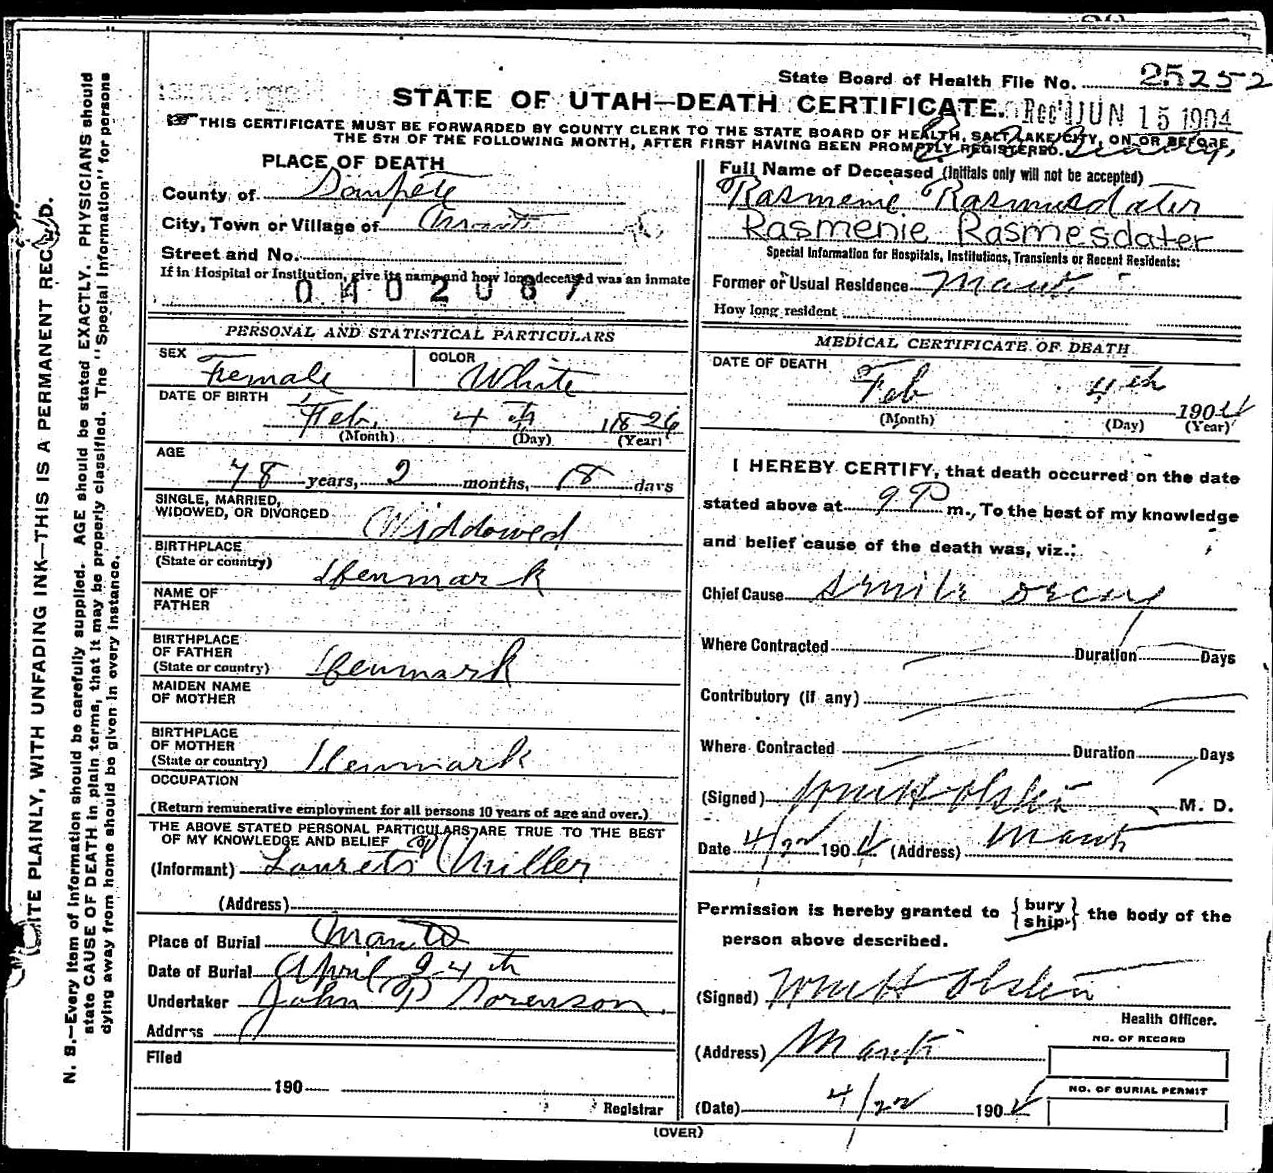 State Board of Health File No. 25252
STATE OF UTAH—DEATH CERTIFICATE. Rec'd JUN 15 1904
THIS CERTIFICATE MUST BE FORWARDED BY COUNTY CLERK TO THE STATE BOARD OF HEALTH, SALT LAKE CITY, ON OR BEFORE
THE 5TH OF THE FOLLOWING MONTH, AFTER FIRST HAVING BEEN PROMPTLY REGISTERED.
PLACE OF DEATH
County of Sanpete
City, Town or Village of Manti
Street and No.
If in Hospital or Institution, give its name and how long deceased was an inmate
0402087
Full Name of Deceased (Initials only will not be accepted)
Rasmenie Rasmusdater
Rasmenie Rasmesdater
Special Information for Hospitals, Institutions, Transients or Recent Residents:
Former or Usual Residence Manti
How long resident
PERSONAL AND STATISTICAL PARTICULARS
SEX Female
COLOR White
DATE OF BIRTH
Feb. 4th 1826
(Month) (Day) (Year)
AGE
78 years, 2 months, 18 days
SINGLE, MARRIED,
WIDOWED, OR DIVORCED Widdowed
BIRTHPLACE
(State or country) Denmark
NAME OF
FATHER
BIRTHPLACE
OF FATHER
(State or country) Denmark
MAIDEN NAME
OF MOTHER
BIRTHPLACE
OF MOTHER
(State or country) Denmark
OCCUPATION
(Return remunerative employment for all persons 10 years of age and over.)
THE ABOVE STATED PERSONAL PARTICULARS ARE TRUE TO THE BEST
OF MY KNOWLEDGE AND BELIEF
(Informant) Miller
(Address)
Place of Burial Manti
Date of Burial April 24th
Undertaker John P Sorenson
Address
Filed
190
Registrar
MEDICAL CERTIFICATE OF DEATH
DATE OF DEATH
Feb 4th 1904
(Month) (Day) (Year)
I HEREBY CERTIFY, that death occurred on the date
stated above at 9 P m., To the best of my knowledge
and belief cause of the death was, viz.:
Chief Cause Senile decay
Where Contracted Duration Days
Contributory (if any)
Where Contracted Duration Days
(Signed) Olsten M. D.
Date 4/22 1904 (Address) Manti
Permission is hereby granted to {bury ship} the body of the
person above described.
(Signed) Olsten
Health Officer.
(Address) Manti
NO. OF RECORD
NO. OF BURIAL PERMIT
(Date) 4/22 1904
(OVER)
WRITE PLAINLY, WITH UNFADING INK—THIS IS A PERMANENT RECORD.
N. B.—Every item of information should be carefully supplied. AGE should be stated EXACTLY. PHYSICIANS should
state CAUSE OF DEATH in plain terms, that it may be properly classified. The "Special Information" for persons
dying away from home should be given in every instance.